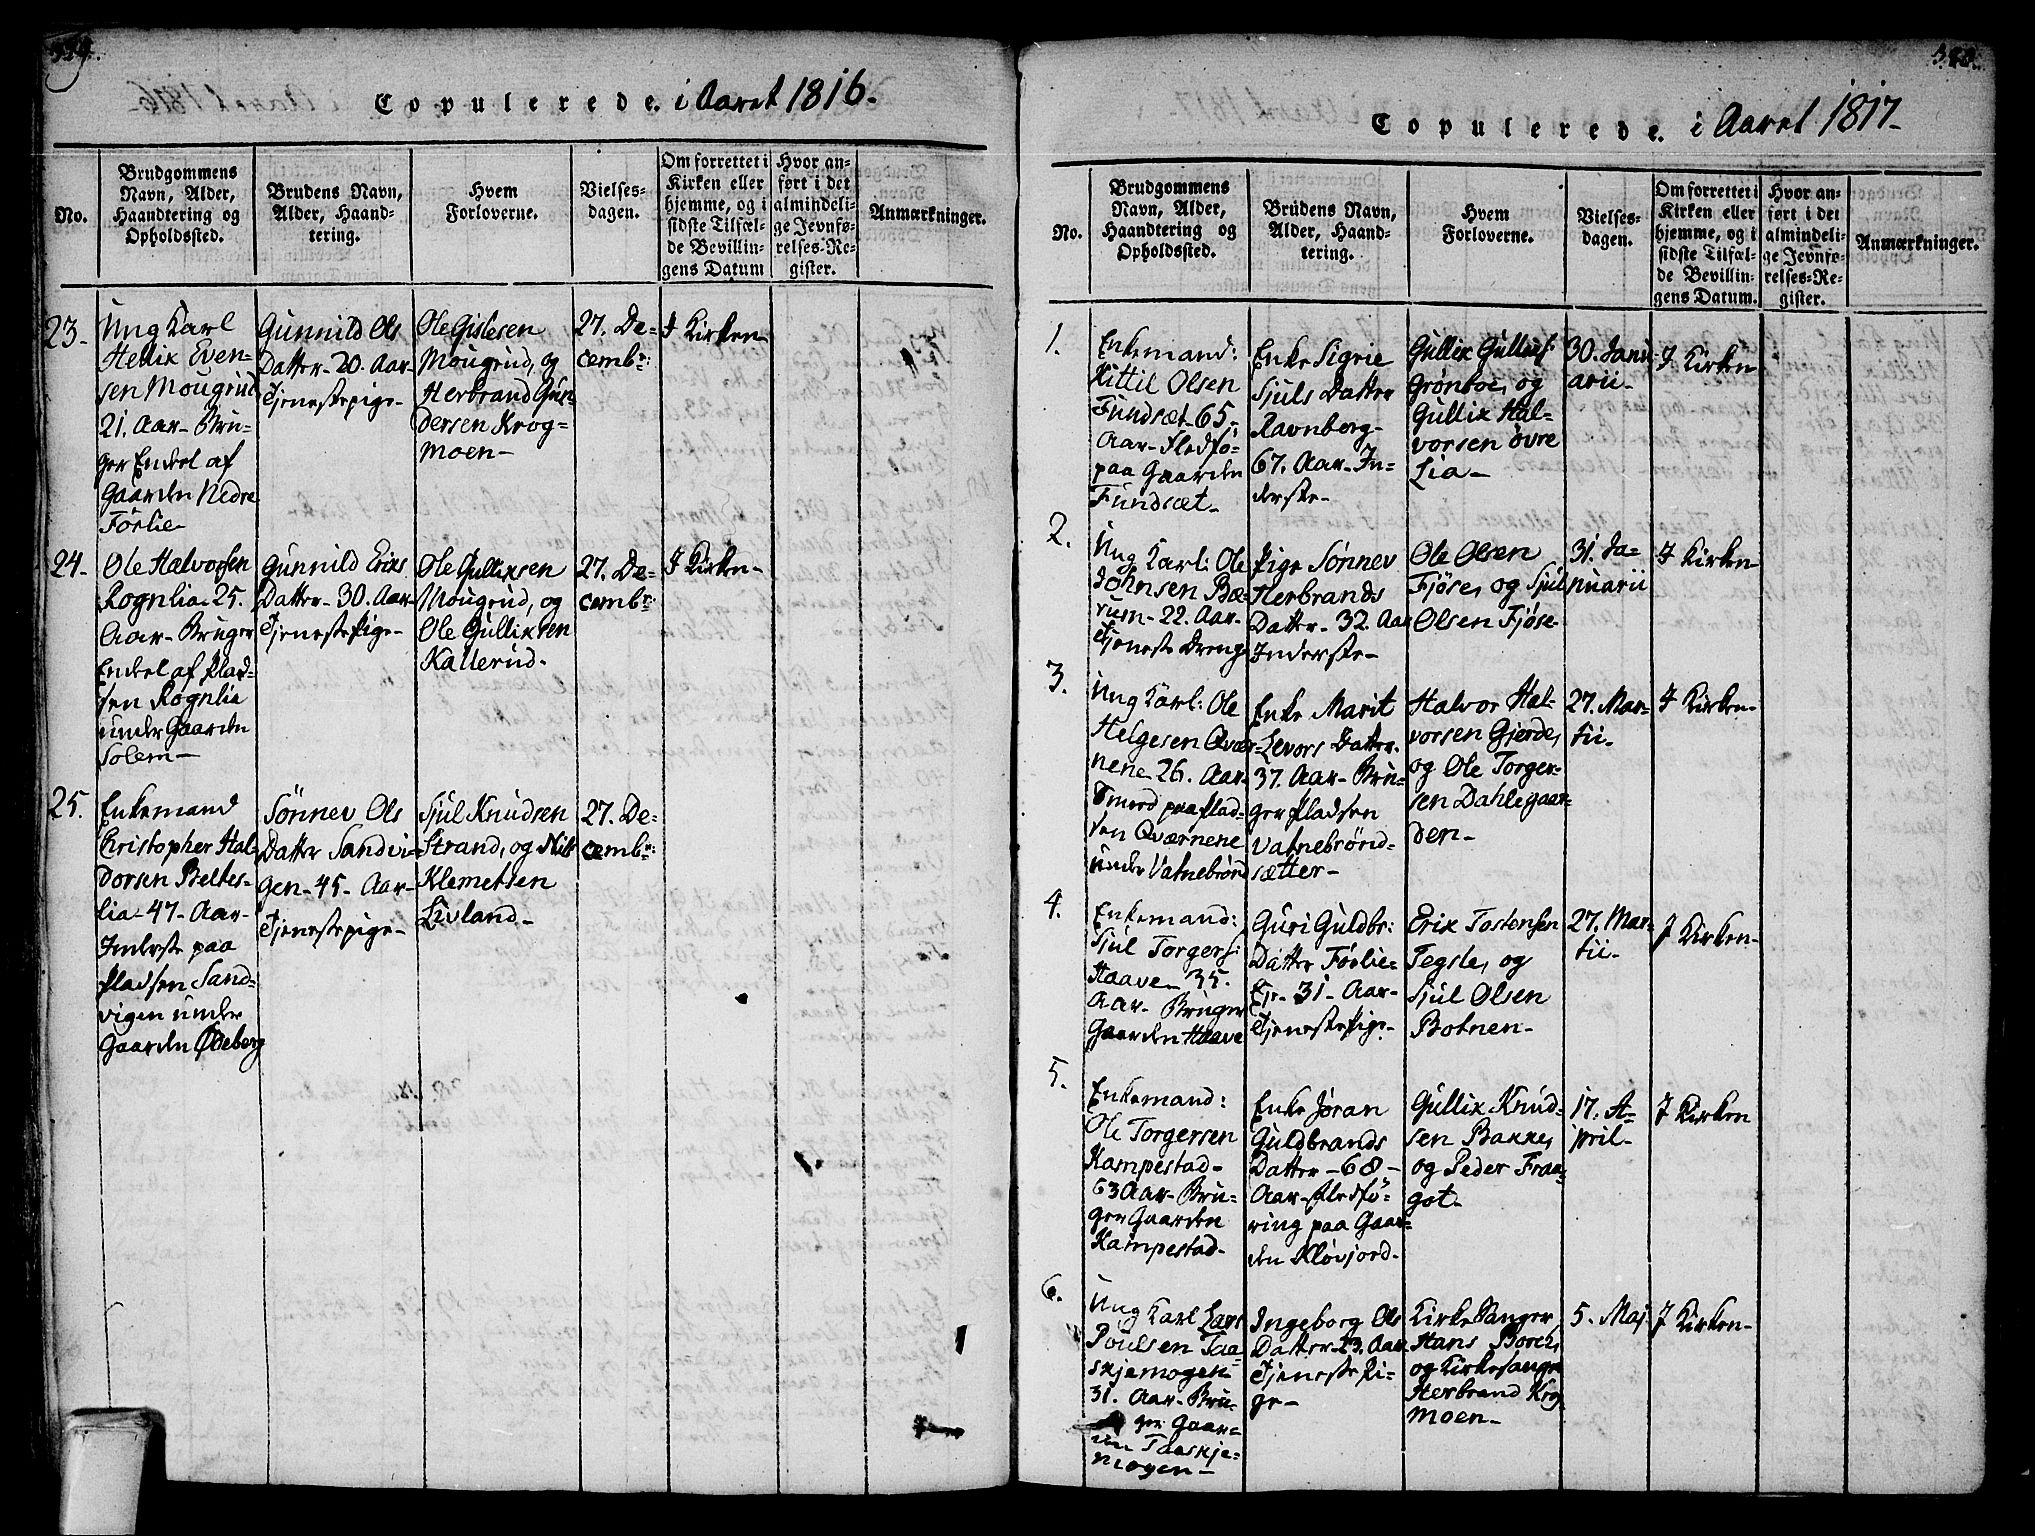 Copulerede. i Aaret 1816.
No.
Brudgommens
Navn, Alder,
Haandtering og
Opholdssted.
Brudens Navn,
Alder, Haand-
tering.
Hvem
Forloverne.
Vielses-
dagen.
Om forrettet i
Kirken eller
hjemme, og i
sidste Tilfæl-
de Bevillin-
gens Datum
Hvor an-
ført i det
almindeli-
ge Jevnfø-
relses-Re-
gister.
Anmærkninger.
23.
Ung Karl
Hellik Even-
sen Mougrud
21. Aar- Bru-
ger Endel af
Gaarden Nedre
Förlie-
Gunnild Ols
Datter- 20. Aar-
Tjenestepige-
Ole Gislesen
Mougrud, og
Herbrand Gun-
dersen Krog=
moen-
27. De-
cembr:
I Kirken-
24.
Ole Halvorsen
Rognlia- 25.
Aar- Bruger
Endel af Plad-
sen Rognlia
under Gaarden
Solem-
Gunnild Eriks
Datter- 30. Aar-
TjenestePige-
Ole Gulliksen
Mougrud, og
Ole Gulliksen
Kallerud.
27. De-
cembr:
I Kirken-
25.
Enkemand
Christopher Hal-
dorsen Beltes-
lia- 47- Aar-
Inderste paa
Pladsen Sand-
vigen under
Gaarden Ødeberg
Sønnev Ols
Datter Sandvi-
gen- 45- Aar-
Tjenestepige-
Sjul Knudsen
Strand, og Nils
Klemetsen
Livland-
27. De-
cembr:
Copulerede. i Aaret 1817-
No.
Brudgommens
Navn, Alder,
Haandtering og
Opholdssted.
Brudens Navn,
Alder, Haand-
tering.
Hvem
Forloverne.
Vielses-
dagen.
Om forrettet i
Kirken eller
hjemme, og i
sidste Tilfæl-
de Bevillin-
gens Datum.
Hvor an-
ført i det
almindeli-
ge Jevnfø-
relses-Re-
gister.
Anmærkninger.
1.
Enkemand:
Kittil Olsen
Fundsæt- 65-
Aar- Fledfø-
paa Gaarden
Fundsæt-
Enke Sigrie
Sjuls Datter
Ravnberg-
67. Aar- In-
derste-
Gullik Gulliks:
Grønboe, og
Gullik Hal-
vorsen øvre
Lia-
30. Janu-
arii-
I Kirken
2.
Ung Karl: Ole
Johnsen Bæ-
rum- 22. Aar-
Tjeneste Dreng
Pige Sønnev
Herbrands
Datter- 32. Aar
Inderste-
Ole Olsen
Fjøse, og Sjul
Olsen Fjøse-
31. Ja-
nuarii
I Kirken
3.
Ung Karl: Ole
Helgesen Qvær-
nene 26. Aar-
Smed paa Plad-
sen Qværnene
under Vatnebrønd
Enke Marit
Levors Datter-
37. Aar- Bru-
ger Pladsen
Vatnebrønd-
sætter-
Halvor Hal-
vorsen Gjerde,
og Ole Torger-
sen Dahlegaar-
den-
27. Mar-
tii-
I Kirken-
4.
Enkemand:
Sjul Torgers:
Haave- 35.
Aar- Bruger
Gaarden Haave
Guri Guldbr:
Datter Förlie-
Eje- 31- Aar-
TjenestePige-
Erik Tostensen
Tegsle, og
Sjul Olsen
Botnen-
27. Mar-
tii-
I Kirken-
5.
Enkemand:
Ole Torgersen
Kampestad-
63 Aar- Bru-
ger Gaarden
Kampestad-
Enke Jøran
Guldbrands
Datter- 68-
Aar- Fledfø-
ring paa Gaar-
den Kløvjord-
Gullik Knud-
sen Bakke,
og Peder Fraa-
got-
17. A-
pril-
I Kirken
6.
Ung Karl Lars
Poulsen Taa-
skjemogen
31. Aar- Bru-
ger Gaar-
den Taaskje-
mogen-
Ingeborg Ols
Datter- 23. Aar
Tjeneste Pi-
ge-
KirkeSanger
Hans Borch,
og Kirkesanger
Herbrand Krog
moen-
5. Maj
I Kirken-